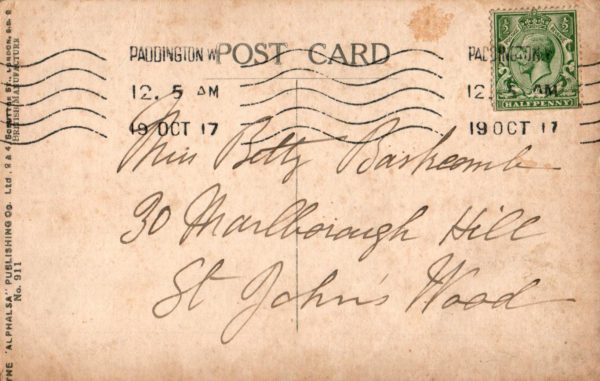 PADDINGTON W
POST CARD
PADDINGTON
12. 5 AM
12. 5 AM
19 OCT 17
19 OCT 17
HALFPENNY
Miss Betty Bashcomb
30 Marlborough Hill
St John's Wood
THE "ALPHALSA" PUBLISHING Co. Ltd., 2 & 4, ST., LONDON, E.C. 2
BRITISH MANUFACTURE
No. 911